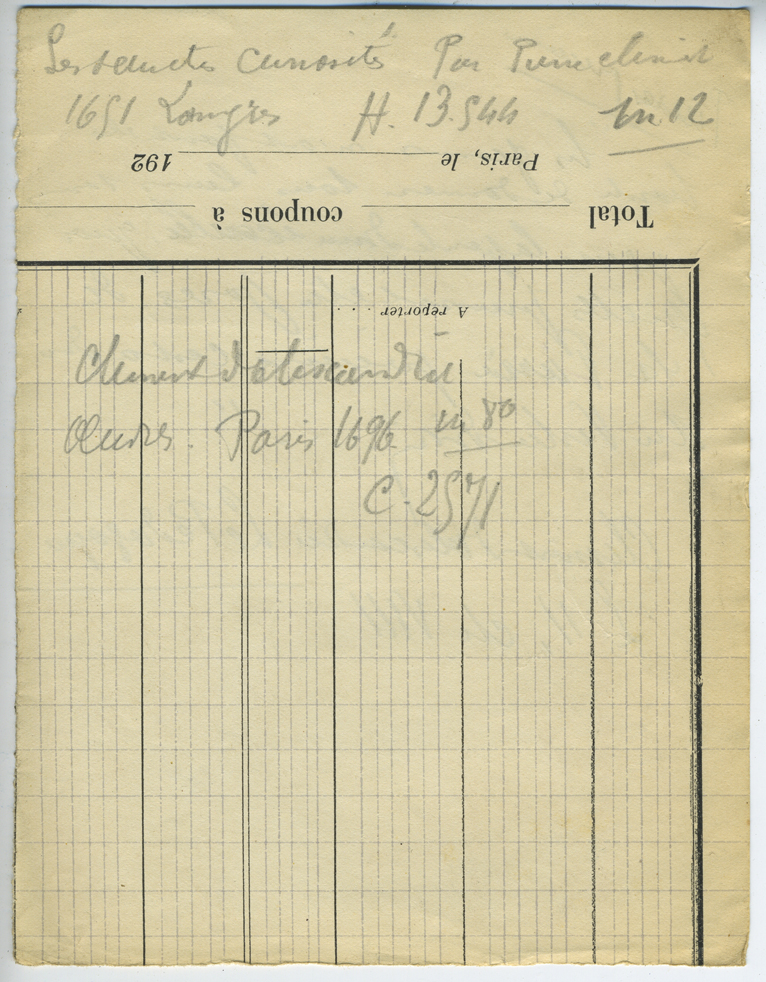 Les sainctes curiosités Par Pierre clement
1651 Langres H. 13.544 in 12
Paris, le 192
Total coupons à
A reporter . . . .
Clement d'alexandrie
Œuvres. Paris 1696 in 8o
C. 2571